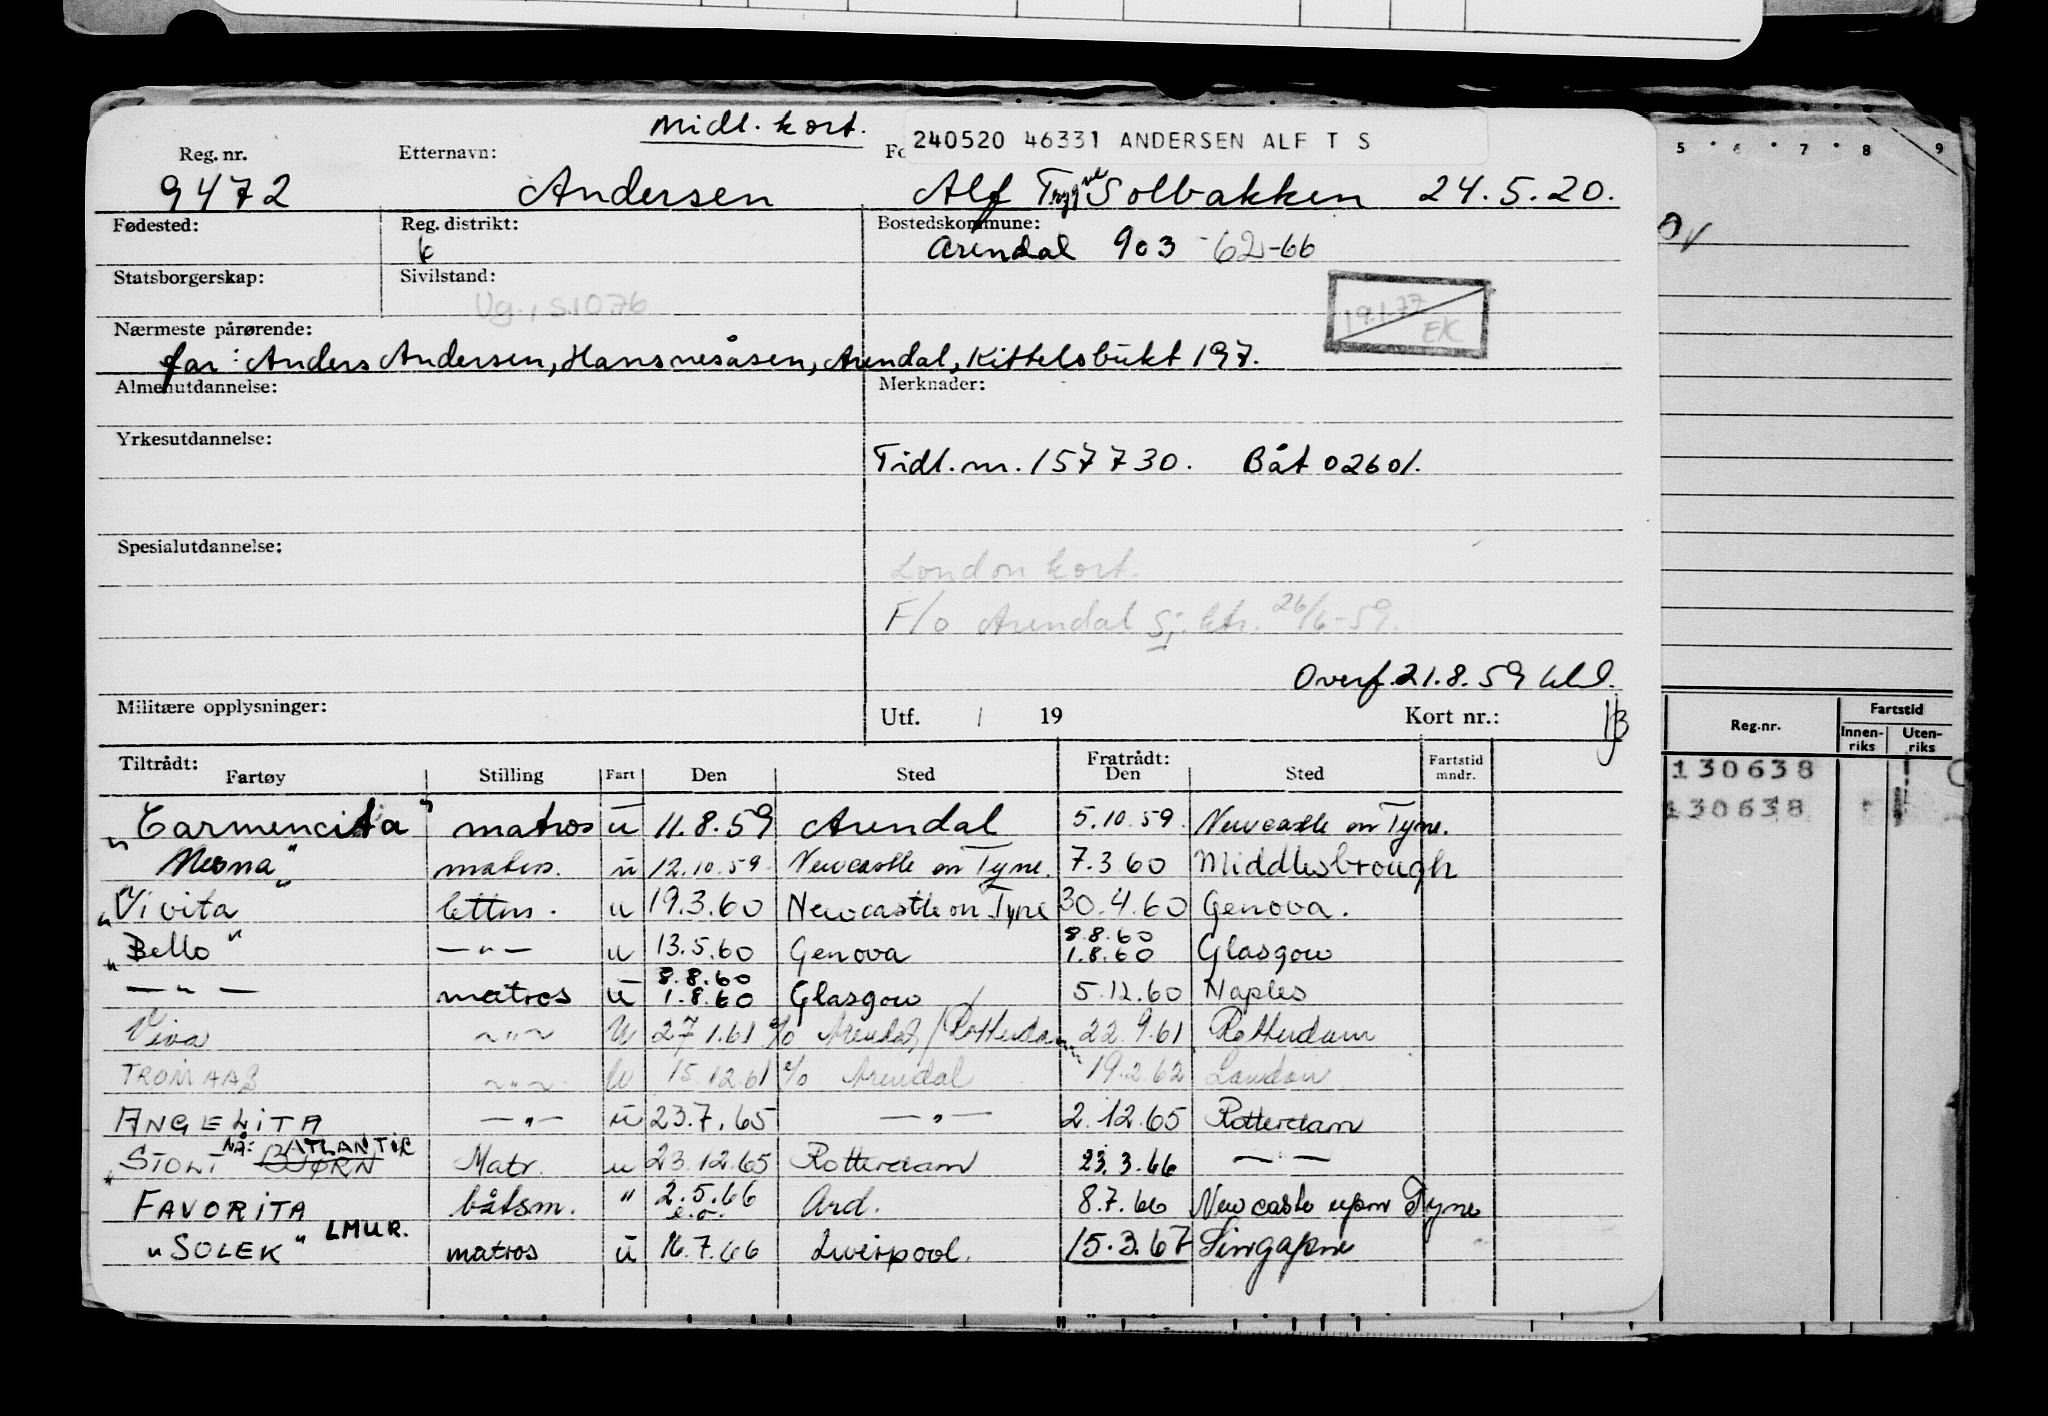 Midl. kort.
240520 46331 ANDERSEN ALF T S
Reg. nr. Etternavn: Fo
9472 Andersen Alf Trygve Solbakken 24.5.20.
Fødested: Reg. distrikt: Bostedskommune:
Arendal 903 -62-66
Statsborgerskap: Sivilstand:
Vg., S.1076
19.1.77
EK
Nærmeste pårørende:
far: Anders Andersen, Hansnesåsen, Arendal, Kittelsbukt 197.
Almenutdannelse: Merknader:
Yrkesutdannelse:
Tidl. nr. 157730. Båt 02601.
Spesialutdannelse:
London kort.
F/o Arendal Sj. ktr. 26/6-59.
Overf. 21.8.59
Militære opplysninger: Utf. / 19 Kort nr.:
Tiltrådt: Fratrådt:
Fartøy Stilling Fart Den Sted Den Sted Fartstid mndr.
"Carmencita" matros u 11.8.59 Arendal 5.10.59. Newcastle on Tyne.
Nesna" matros. u 12.10.59. Newcastle on Tyne. 7.3.60 Middlesbrough
"Vivita" lettm. u 19.3.60 Newcastle on Tyne 30.4.60 Genova.
"Bello" —"— u 13.5.60 Genova 8.8.60 1.8.60 Glasgow
—"— matros u 8.8.60 1.8.60 Glasgow 5.12.60 Naples
Viva ~"~ u 27.1.61 e/o Arendal/Rotterdam 22.9.61 Rotterdam
TROMAAS ~"~ u 15.12.61 e/o Arendal 19.2.62 London
ANGELITA —"— u 23.7.65 —"— 2.12.65 Rotterdam
NÅ: ATLANTIC
"STOLT BJØRN Matr. u 23.12.65 Rotterdam 23.3.66 —"—
FAVORITA båtsm. " 2.5.66 e.o. Ard. 8.7.66 Newcastle upon Tyne
"SOLEK" LMUR. matros u 16.7.66 Liverpool. 15.3.67 Singapore
5 · 6 · 7 · 8 9
Reg.nr. Fartstid
Innen-riks Uten-riks
130638
130638